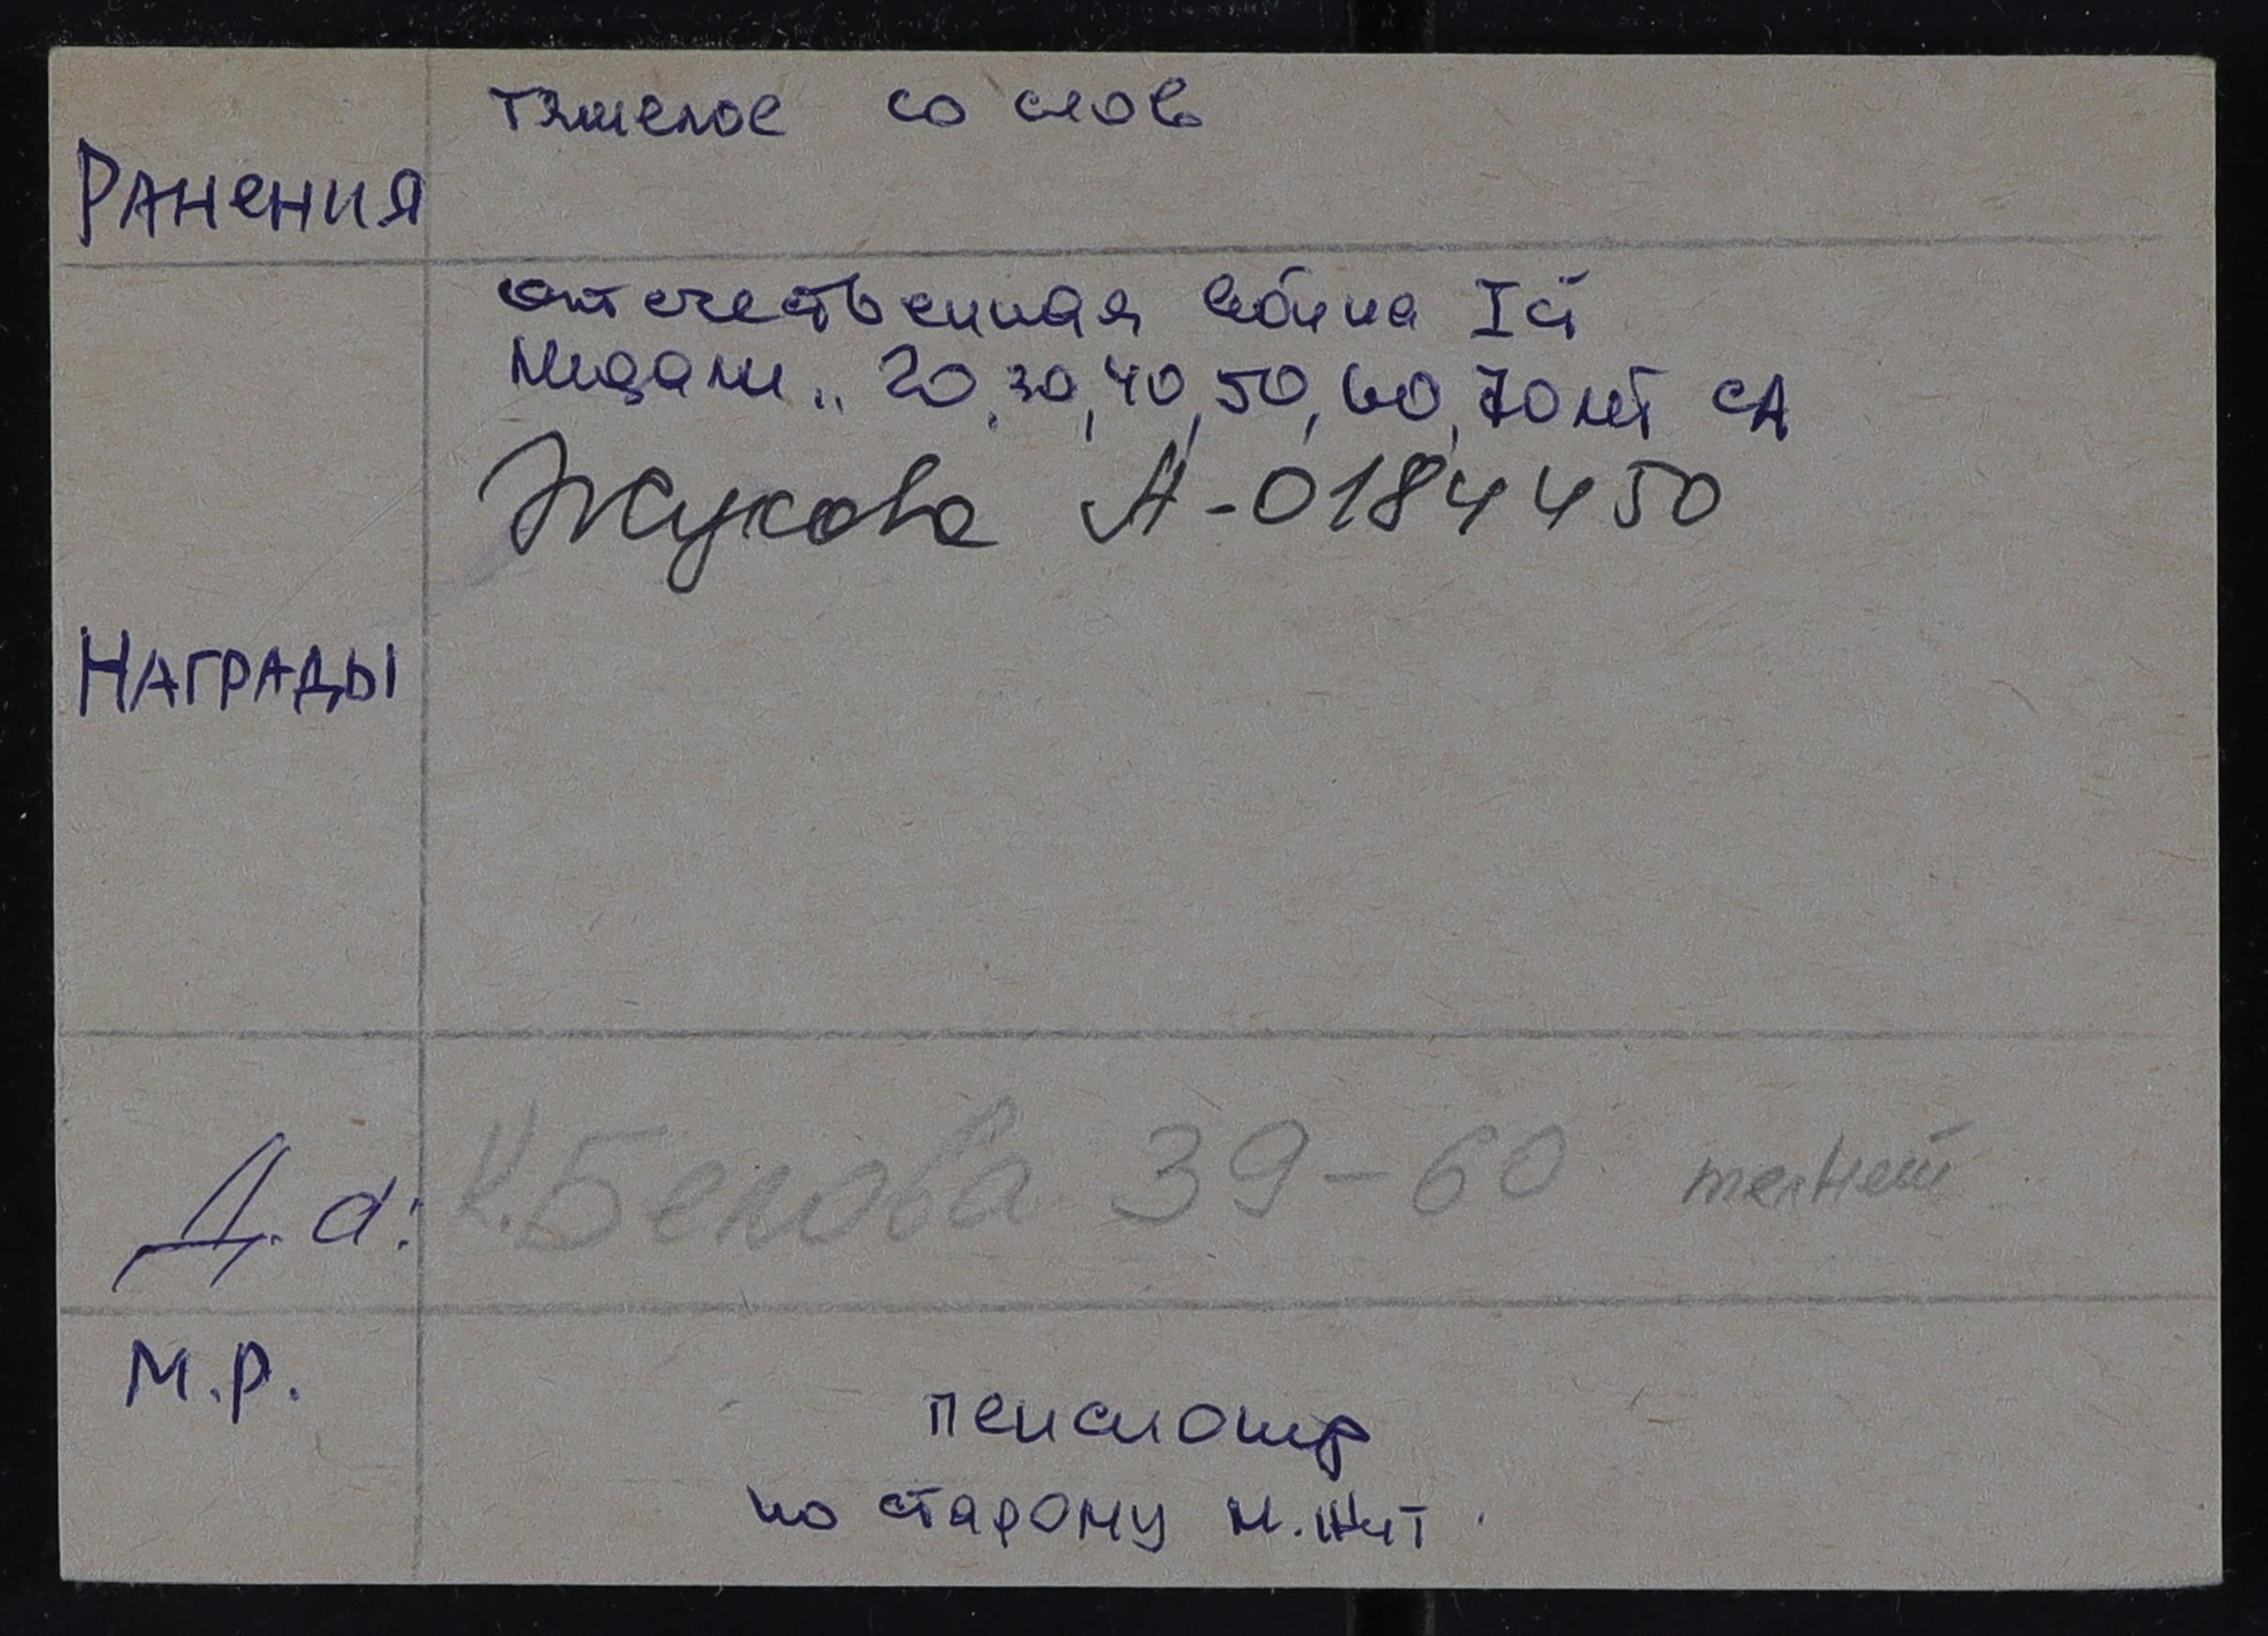 Ранения
тяжелое со слов
Награды
отечественная война I ст
Медали „ 20, 30, 40, 50, 60, 70 лет СА
Жукова А-0184450
Д.а: К.Белова 39-60 тел нет
М.Р.
пенсионер
по старому м.жит